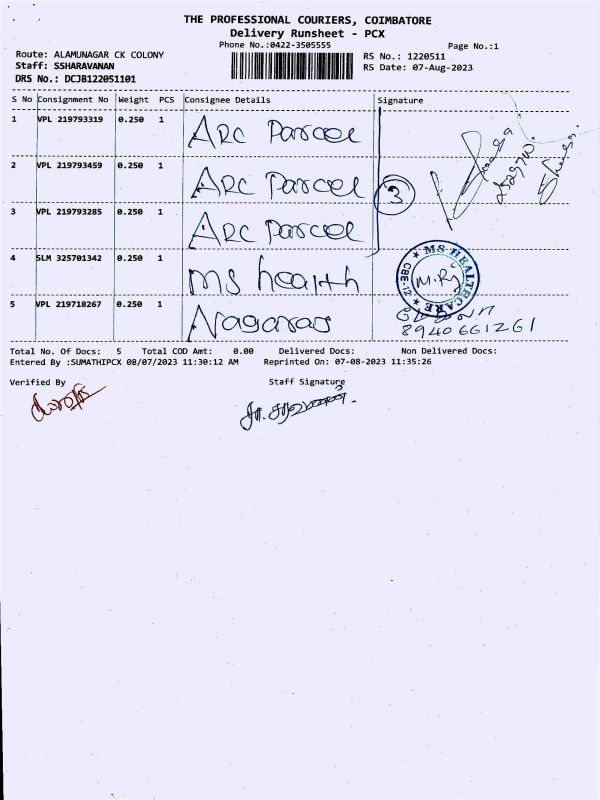 THE PROFESSIONAL COURIERS, COIMBATORE
Delivery Runsheet - PCX
Phone No.:0422-3505555
Page No.:1
Route: ALAMUNAGAR CK COLONY
RS No.: 1220511
Staff: SSHARAVANAN
RS Date: 07-Aug-2023
DRS No.: DCJB122051101
S No Consignment No Weight PCS Consignee Details Signature
1 VPL 219793319 0.250 1 ARC Parcel
2 VPL 219793459 0.250 1 ARC Parcel
3 VPL 219793285 0.250 1 ARC Parcel
3
4 SLM 325701342 0.250 1 ms health
MS HEALTHCARE
CBE-12
5 VPL 219718267 0.250 1 Nagaraj
8940661261
Total No. Of Docs: 5 Total COD Amt: 0.00 Delivered Docs: Non Delivered Docs:
Entered By :SUMATHIPCX 08/07/2023 11:30:12 AM Reprinted On: 07-08-2023 11:35:26
Verified By Staff Signature